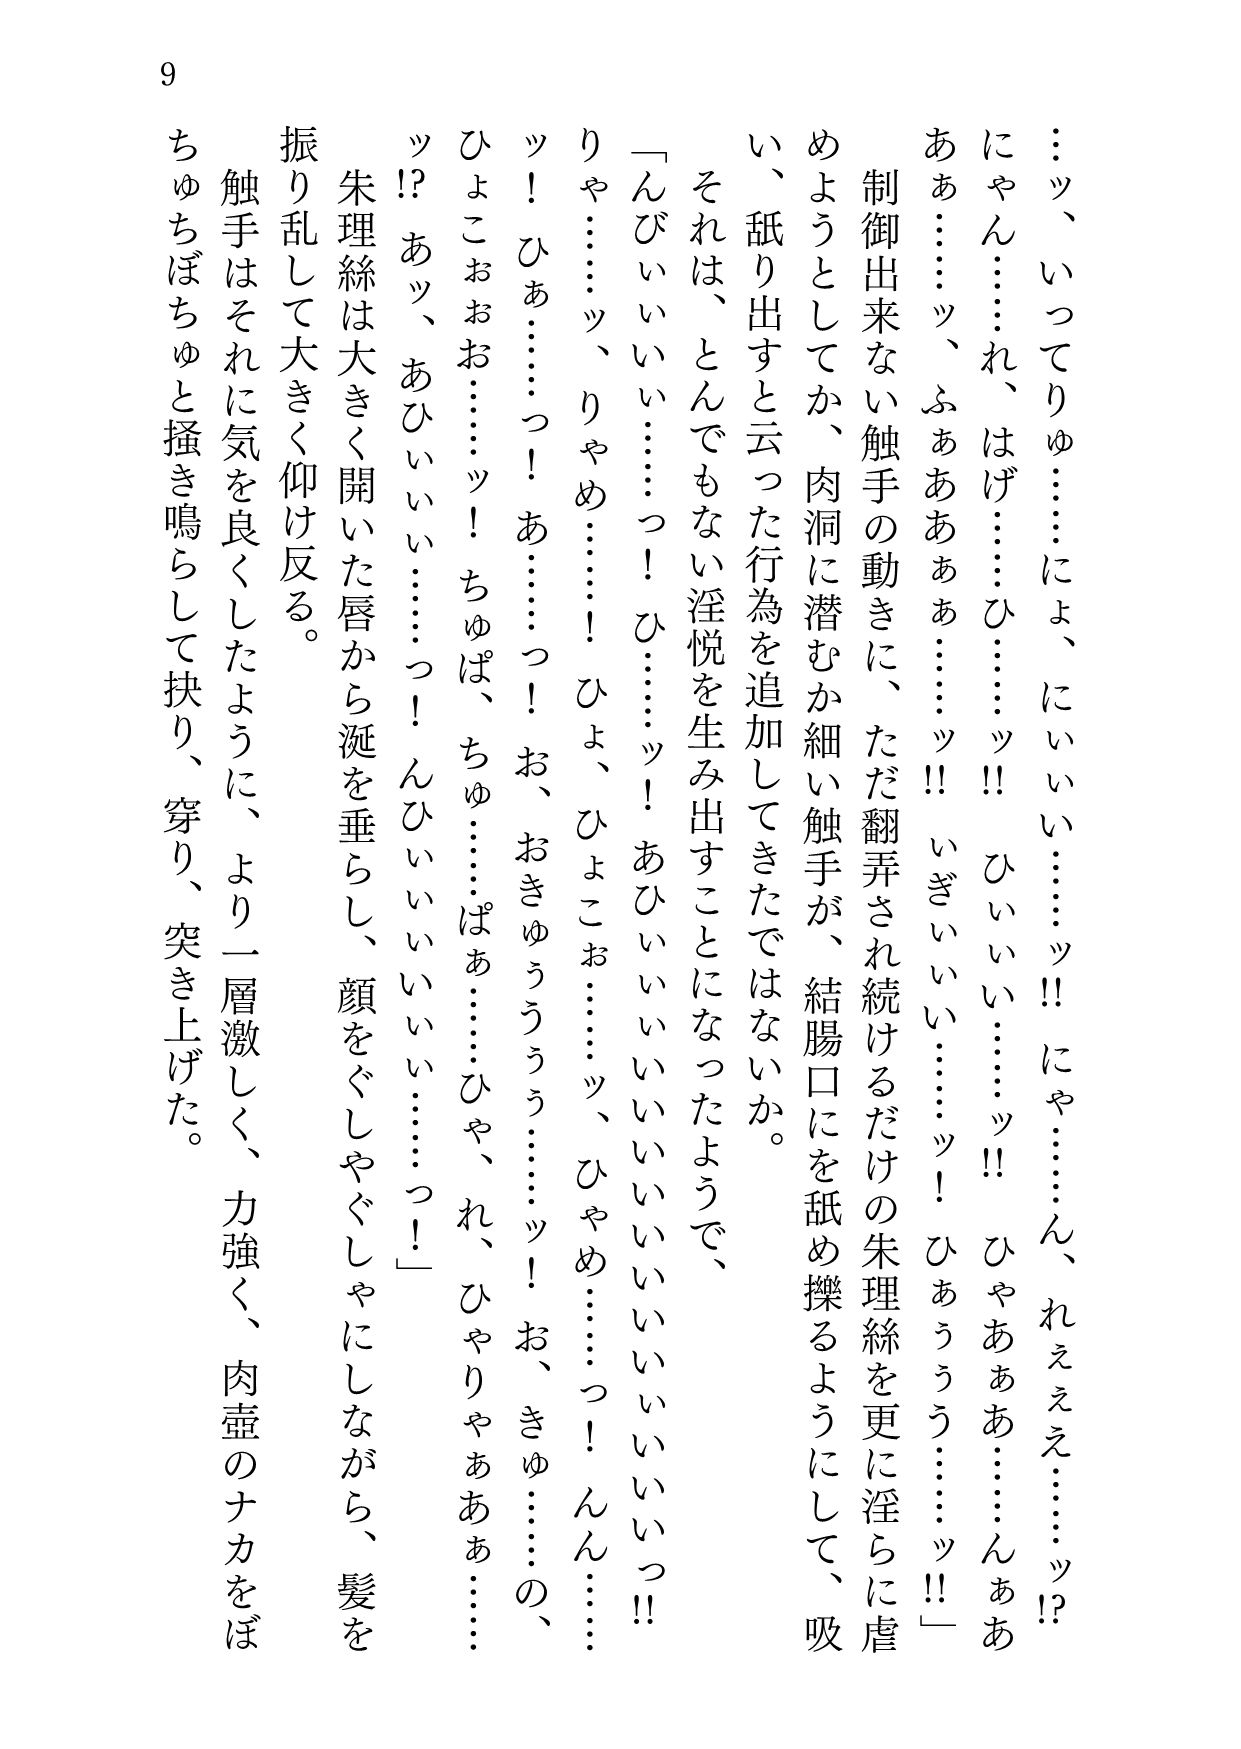 9
…ッ、いってりゅ……にょ、にぃぃい……ッ!! にゃ……ん、れぇぇえ……ッ!?
にゃん……れ、はげ……ひ……ッ!! ひぃぃい……ッ!! ひゃあぁあ……んぁあ
あぁ……ッ、ふぁああぁぁ……ッ!! いぎぃぃい……ッ! ひぁぅぅう……ッ!!」
　制御出来ない触手の動きに、ただ翻弄され続けるだけの朱理絲を更に淫らに虐
めようとしてか、肉洞に潜むか細い触手が、結腸口にを舐め擽るようにして、吸
い、舐り出すと云った行為を追加してきたではないか。
　それは、とんでもない淫悦を生み出すことになったようで、
「んびぃぃいぃ……っ! ひ……ッ! あひぃぃぃいいいいいいいぃいいいっ!!
りゃ……ッ、りゃめ……! ひょ、ひょこぉ……ッ、ひゃめ……っ! んん……
ッ! ひぁ……っ! あ……っ! お、おきゅぅうぅう……ッ! お、きゅ……の、
ひょこぉぉお……ッ! ちゅぱ、ちゅ……ぱぁ……ひゃ、れ、ひゃりゃぁあぁ……
ッ!? あッ、あひぃぃい……っ! んひぃぃぃいぃい……っ!」
　朱理絲は大きく開いた唇から涎を垂らし、顔をぐしゃぐしゃにしながら、髪を
振り乱して大きく仰け反る。
　触手はそれに気を良くしたように、より一層激しく、力強く、肉壺のナカをぼ
ちゅちぼちゅと掻き鳴らして抉り、穿り、突き上げた。